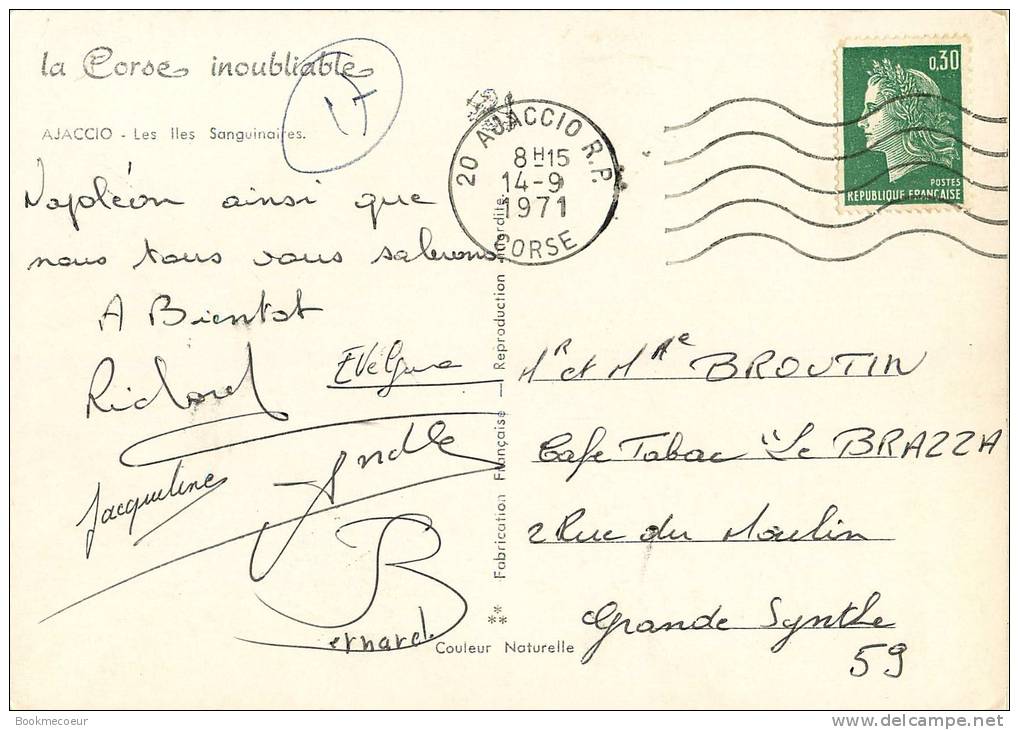 la Corse inoubliable
17
AJACCIO - Les Iles Sanguinaires.
Napoléon ainsi que
nous tous vous saluons
A Bientot
Richard
Evelyne
Jacqueline
André
Bernard
20 AJACCIO R.P.
8H15
14-9
1971
CORSE
0,30
POSTES
REPUBLIQUE FRANÇAISE
Mr et Mme BROUTIN
Cafe Tabac "Le BRAZZA
2 Rue du Moulin
Grande Synthe
59
** Fabrication Française — Reproduction interdite.
Couleur Naturelle
Bookmecoeur
delcampe.net